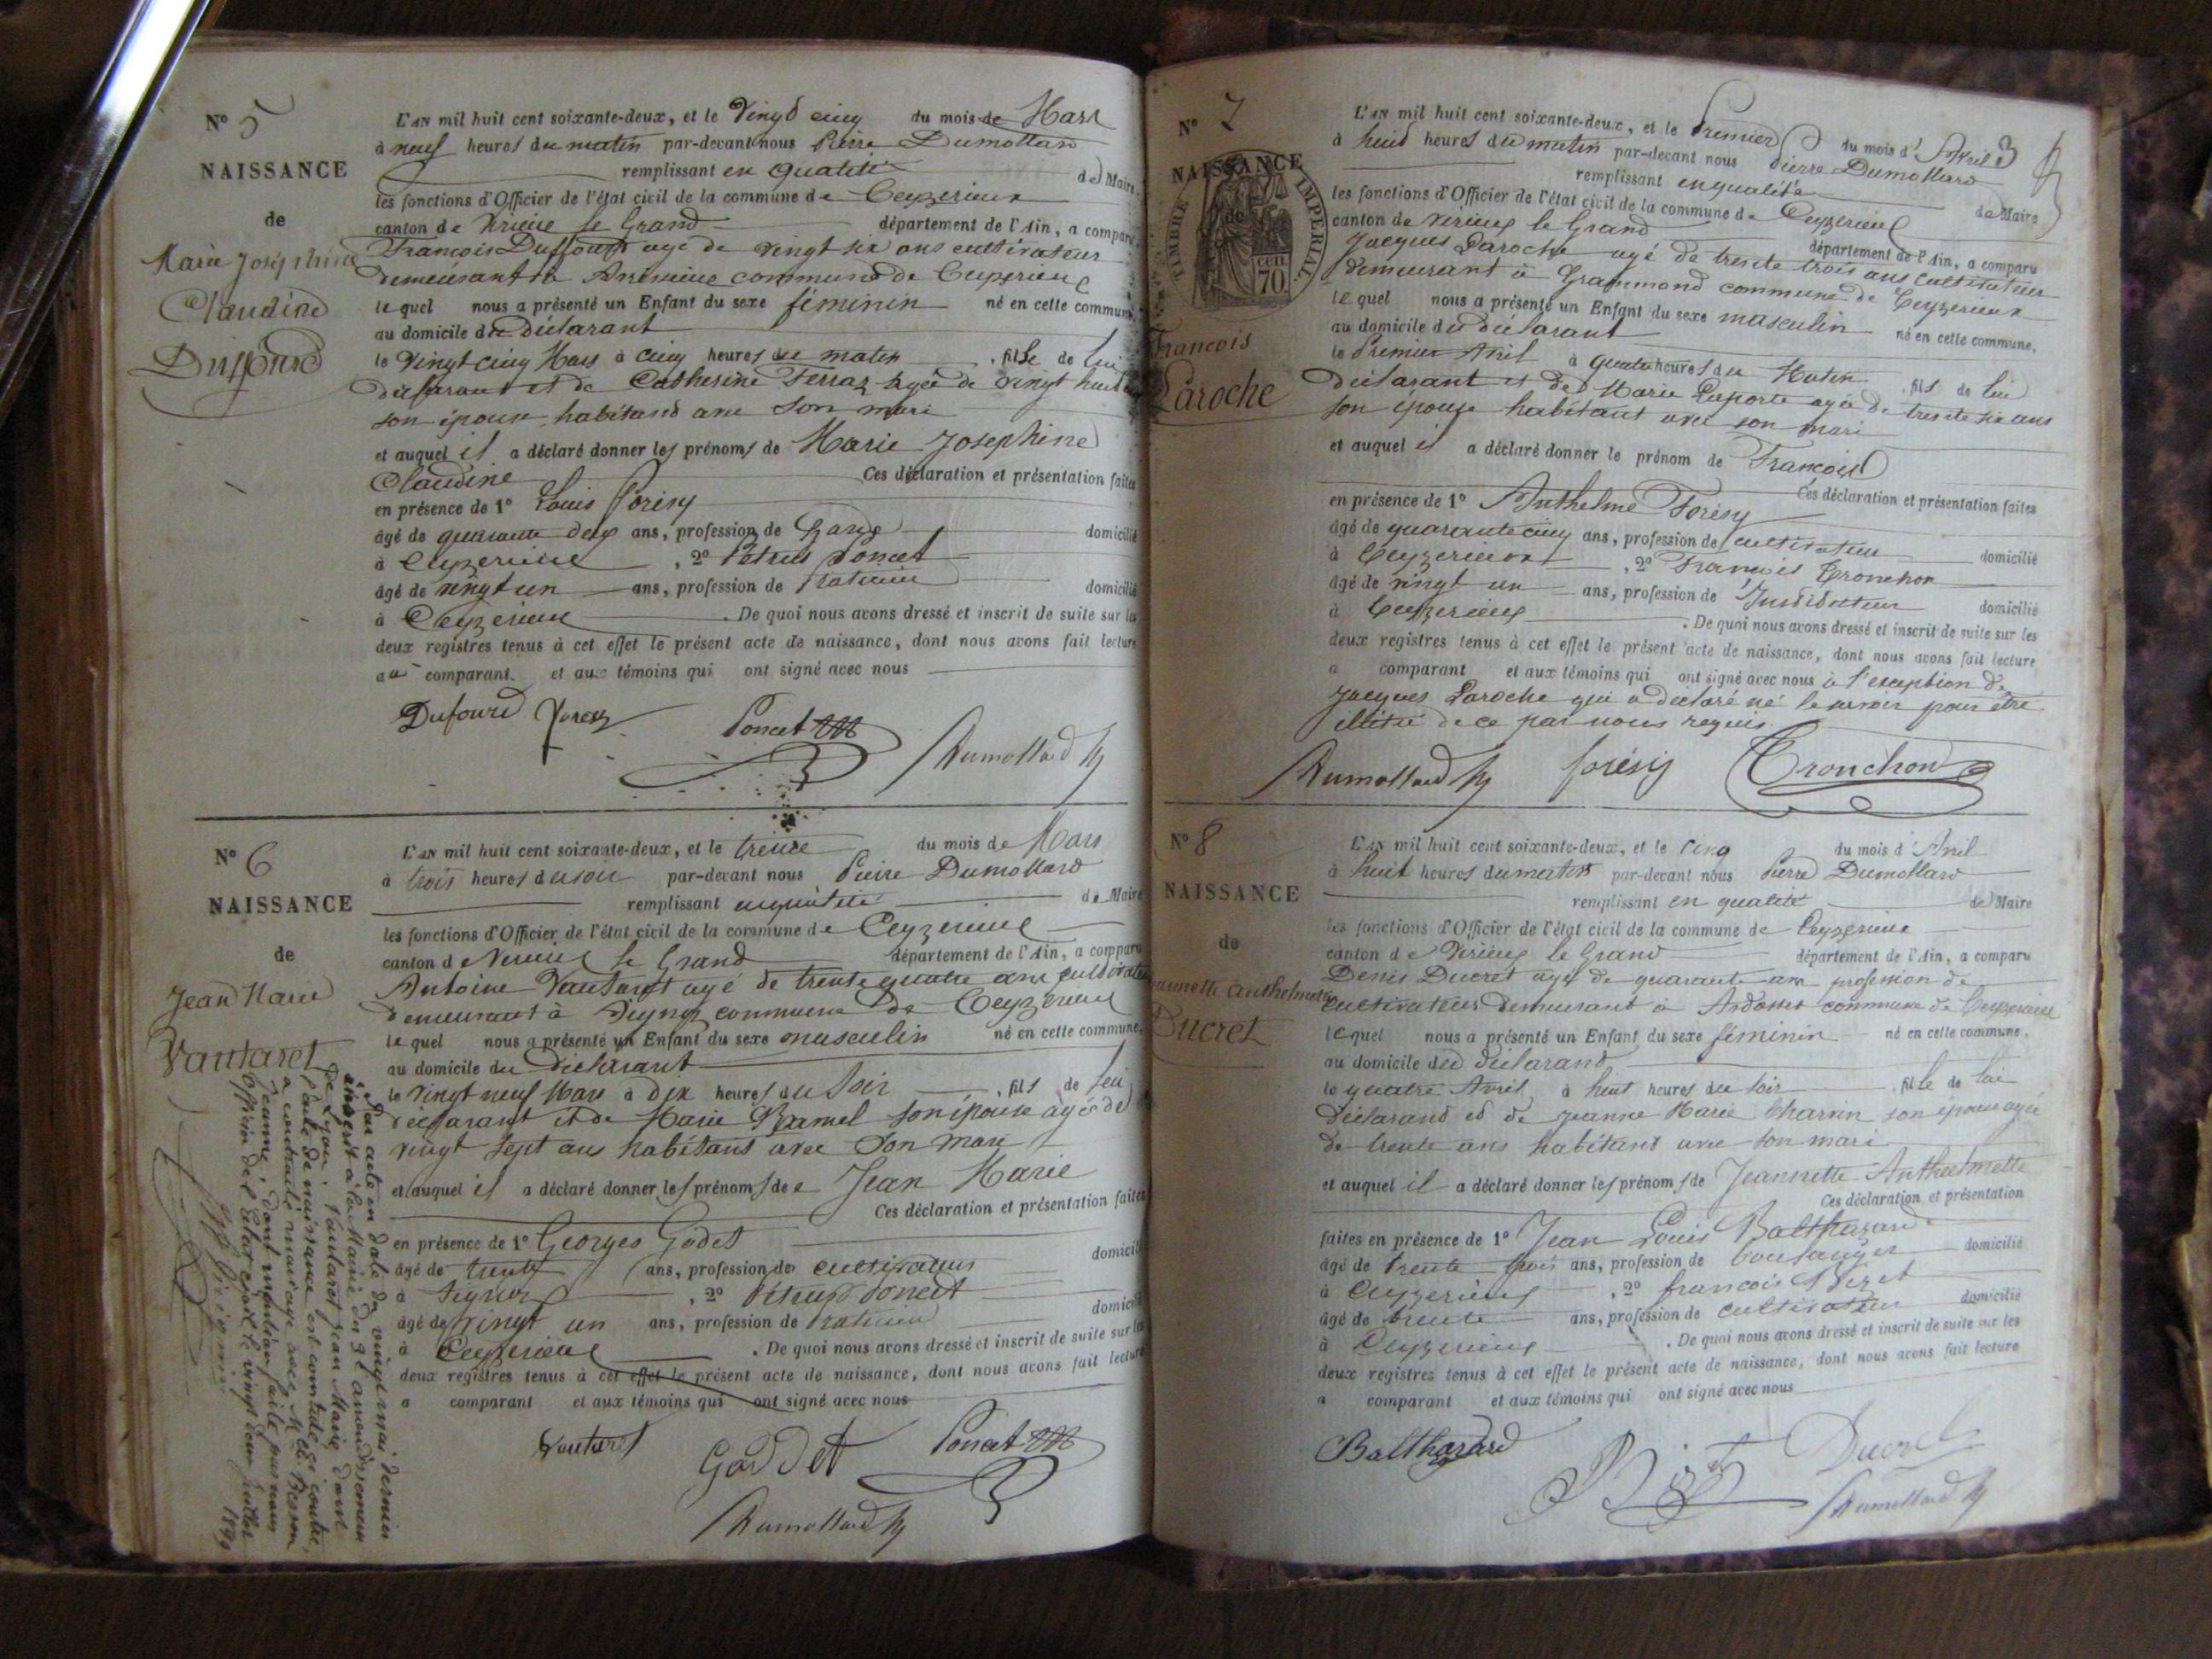 N° 5
NAISSANCE
de
Marie Josephine
Claudine
Duffourd
L'AN mil huit cent soixante-deux, et le Vingt cinq du mois de Mars
à neuf heures du matin par-devant nous Pierre Dumollard
remplissant en qualité de Maire
les fonctions d'Officier de l'état civil de la commune de Ceyzerieux
canton de Virieux le Grand département de l'Ain, a comparu
François Duffourd agé de vingt six ans cultivateur
demeurant à commune de Ceyzerieux
le quel nous a présenté un Enfant du sexe féminin né en cette commune,
au domicile du déclarant
le vingt cinq Mars à cinq heures du matin , fille de lui
déclarant et de Catherine Ferraz agée de vingt huit ans
son épouse habitand avec son mari
et auquel il a déclaré donner les prénoms de Marie Josephine
Claudine Ces déclaration et présentation faites
en présence de 1° Louis Forésy
âgé de quarante deux ans, profession de Garde domicilié
à Ceyzerieux , 2° Pétrus Poncet
âgé de vingt un ans, profession de Praticien domicilié
à Ceyzerieux . De quoi nous avons dressé et inscrit de suite sur les
deux registres tenus à cet effet le présent acte de naissance, dont nous avons fait lecture
au comparant et aux témoins qui ont signé avec nous
Dufourd Foresy Poncet Dumollard
N° 6
NAISSANCE
de
Jean Marie
Vautaret
L'AN mil huit cent soixante-deux, et le trente du mois de Mars
à trois heures du soir par-devant nous Pierre Dumollard
remplissant en qualité de Maire
les fonctions d'Officier de l'état civil de la commune de Ceyzerieux
canton de Virieux le Grand département de l'Ain, a comparu
Antoine Vautaret agé de trente quatre ans cultivateur
demeurant à commune de Ceyzerieux
le quel nous a présenté un Enfant du sexe masculin né en cette commune,
au domicile du déclarant
le vingt neuf Mars à dix heures du soir , fils de lui
déclarant et de Marie son épouse agée de
vingt sept ans habitant avec son mari
et auquel il a déclaré donner les prénoms de Jean Marie
Ces déclaration et présentation faites
en présence de 1° Georges Godet
âgé de trente ans, profession de cultivateur domicilié
à , 2° Pétrus Poncet
âgé de vingt un ans, profession de Praticien domicilié
à Ceyzerieux . De quoi nous avons dressé et inscrit de suite sur les
deux registres tenus à cet effet le présent acte de naissance, dont nous avons fait lecture
a comparant et aux témoins qui ont signé avec nous
Vautaret Goddet Poncet
Dumollard
Par acte en date du vingt mai dernier
dressé à la Mairie du 3e arrondissement
de Lyon, Vautaret Jean Marie dont
l'acte de naissance est constaté ci contre,
a contracté mariage avec Melle Besson
Jeanne, dont mention faite par nous
officier de l'Etat civil le vingt deux juillet
N° 7
NAISSANCE
de
TIMBRE IMPERIAL
70 cen
François
Laroche
L'AN mil huit cent soixante-deux, et le Premier du mois d'Avril 3
à huit heures du matin par-devant nous Pierre Dumollard
remplissant en qualité de Maire
les fonctions d'Officier de l'état civil de la commune de Ceyzerieux
canton de Virieux le Grand département de l'Ain, a comparu
Jacques Laroche agé de trente trois ans cultivateur
demeurant à Grammond commune de Ceyzerieux
le quel nous a présenté un Enfant du sexe masculin né en cette commune,
au domicile du déclarant
le Premier Avril à quatre heures du Matin , fils de lui
déclarant et de Marie Laporte agée de trente six ans
son épouse habitant avec son mari
et auquel il a déclaré donner le prénom de François
Ces déclaration et présentation faites
en présence de 1° Anthelme Forésy
âgé de quarante cinq ans, profession de cultivateur domicilié
à Ceyzerieux , 2° François Tronchon
âgé de vingt un ans, profession de Instituteur domicilié
à Ceyzerieux . De quoi nous avons dressé et inscrit de suite sur les
deux registres tenus à cet effet le présent acte de naissance, dont nous avons fait lecture
a comparant et aux témoins qui ont signé avec nous à l'exception de
Jacques Laroche qui a déclaré ne le savoir pour être
illitré de ce par nous requis.
Dumollard forésy Tronchon
N° 8
NAISSANCE
de
Jeannette Anthelmette
Ducret
L'AN mil huit cent soixante-deux, et le cinq du mois d'Avril
à huit heures du matin par-devant nous Pierre Dumollard
remplissant en qualité de Maire
les fonctions d'Officier de l'état civil de la commune de Ceyzerieux
canton de Virieux le Grand département de l'Ain, a comparu
Denis Ducret agé de quarante ans profession de
cultivateur demeurant à Ardosset commune de Ceyzerieux
lequel nous a présenté un Enfant du sexe féminin né en cette commune,
au domicile du déclarand
le quatre Avril à huit heures du soir , fille de lui
déclarand et de Jeanne Marie Charvin son épouse agée
de trente ans habitant avec son mari
et auquel il a déclaré donner les prénoms de Jeannette Anthelmette
Ces déclaration et présentation
faites en présence de 1° Jean Louis Balthazard
âgé de trente trois ans, profession de boulanger domicilié
à Ceyzerieux , 2° François
âgé de trente ans, profession de cultivateur domicilié
à Ceyzerieux . De quoi nous avons dressé et inscrit de suite sur les
deux registres tenus à cet effet le présent acte de naissance, dont nous avons fait lecture
a comparant et aux témoins qui ont signé avec nous
Balthazard Ducret
Dumollard